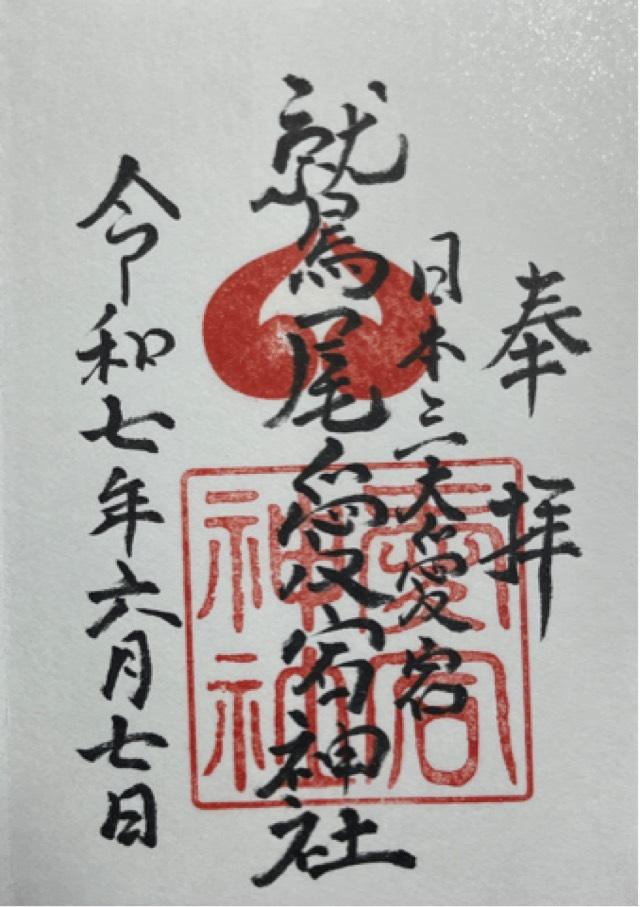 奉拝
日本三大愛宕
鷲尾愛宕神社
令和七年六月七日
愛宕
神社